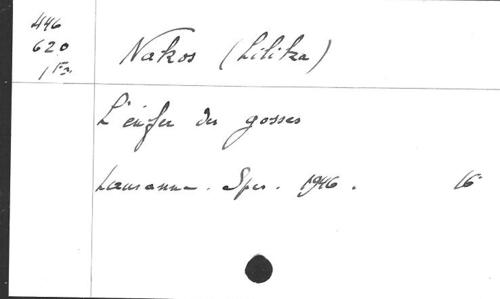 446
620
1 Fr.
Nakos (Lilika)
L'enfer des gosses
Lausanne. Spes. 1946. 16°